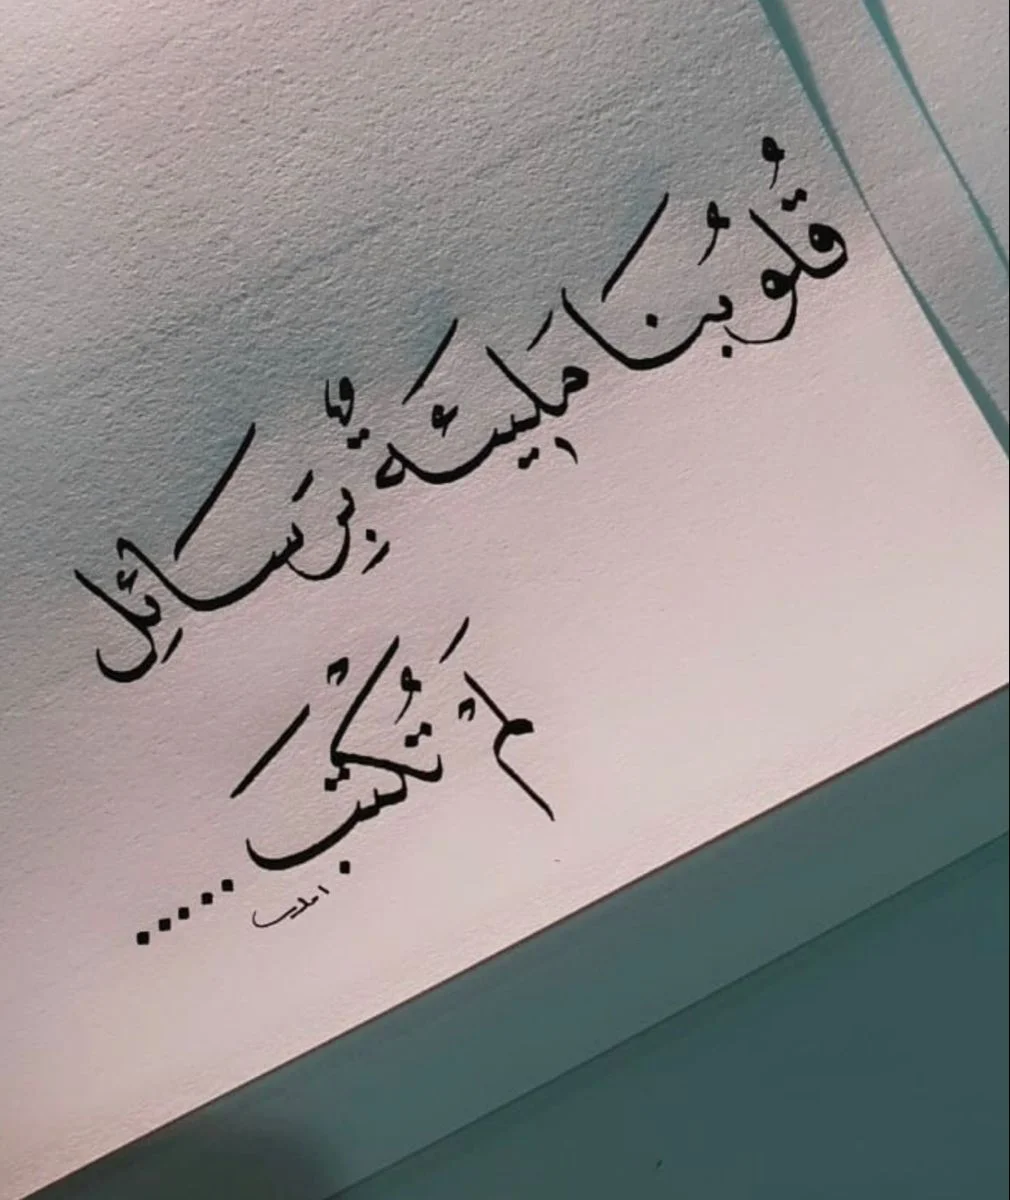 قُلُوبُنَا مَلِيئَةٌ بِرَسَائِل
لَمْ تُكْتَبْ .....